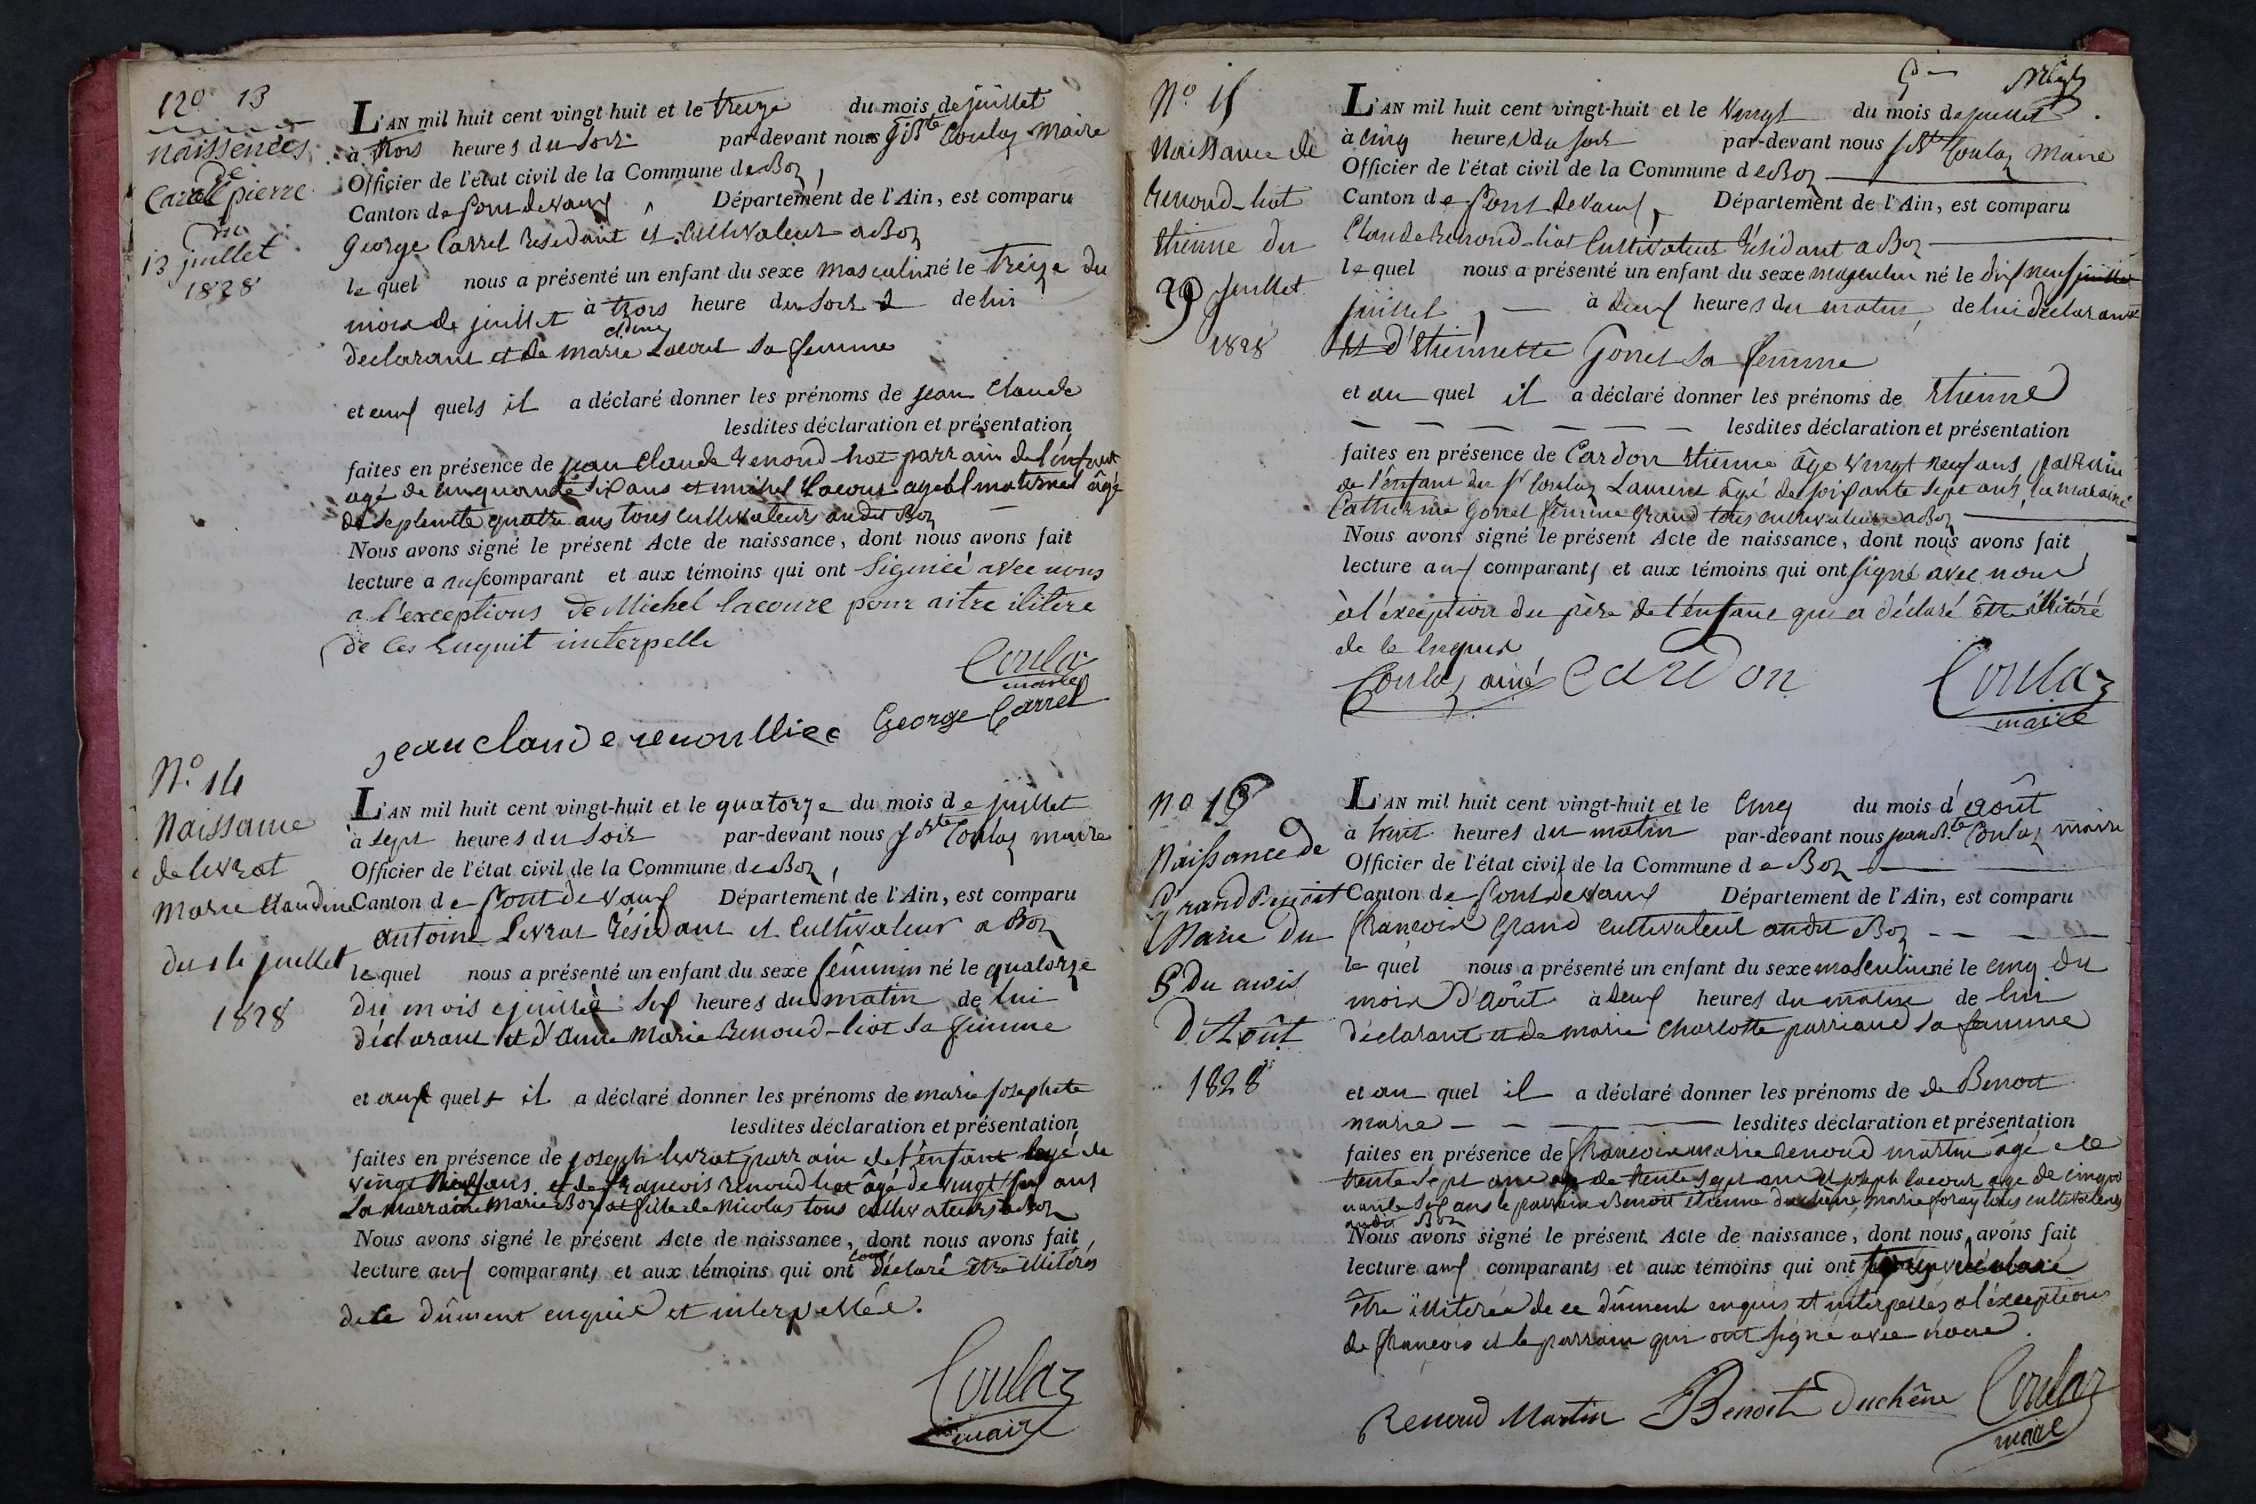 N.o 13
naissences
de
Carrel pierre
du
13 juillet
1828
L'AN mil huit cent vingt-huit et le treize du mois de juillet
à trois heures du soir par-devant nous J Bte Coulaz Maire
Officier de l'état civil de la Commune de Boz,
Canton de Pont devaux, Département de l'Ain, est comparu
George Carrel Residant et Cultivateur a Boz
lequel nous a présenté un enfant du sexe masculin né le treize du
mois de juillet à trois heure du soir de lui
declarant et de marie cldine Lacour sa femme
et aux quels il a déclaré donner les prénoms de jean Claude
lesdites déclaration et présentation
faites en présence de jean Claude renoud-liat parrain de l'enfant
agé de cinquante six ans et michel Lacour ayeul maternel âgé
de septente quatre ans tous cultivateurs audit Boz
Nous avons signé le présent Acte de naissance, dont nous avons fait
lecture a aux comparant et aux témoins qui ont signiée avec nous
a l'exceptions de Michel lacoure pour aitre ilitere
de ces Enquit interpelle
Coulaz
maire
George Carrel
jean claude renoulliaee
N.o 14
Naissance
de livrat
Marie Claudine
du 14 juillet
1828
L'AN mil huit cent vingt-huit et le quatorze du mois de juillet
à sept heures du soir par-devant nous J Bte Coulaz maire
Officier de l'état civil de la Commune de Boz,
Canton de Pont de Vaux Département de l'Ain, est comparu
antoine Levrat Résidant et Cultivateur a Boz
lequel nous a présenté un enfant du sexe féminin né le quatorze
du mois juillet à six heures du matin de lui
déclarant et d'anne Marie Renoud-liat sa femme
et aux quels il a déclaré donner les prénoms de marie josephete
lesdites déclaration et présentation
faites en présence de joseph levrat parrain de l'enfant âgé de
vingt ans et de françois renoud liat âgé de vingt six ans
La marraine Marie Boyat fille de Nicolas tous cultivateurs a Boz
Nous avons signé le présent Acte de naissance, dont nous avons fait
lecture aux comparants et aux témoins qui ont tous déclaré être illitérés
de ce dûment enquis et interpellée.
Coulaz
maire
N.o 15
Naissance de
Renoud-liat
Etienne du
20 Juillet
1828
L'AN mil huit cent vingt-huit et le Vingt du mois de juillet
à cinq heures du soir par-devant nous J Bte Coulaz Maire
Officier de l'état civil de la Commune de Boz
Canton de Pont de Vaux, Département de l'Ain, est comparu
Claude Renoud-liat Cultivateur Résidant a Boz
lequel nous a présenté un enfant du sexe masculin né le dix neuf juillet
juillet, à deux heures du matin, de lui déclarant
et d'Etiennette Gonet sa femme
et au quel il a déclaré donner les prénoms de Etienne
lesdites déclaration et présentation
faites en présence de Cardon Etienne âgé vingt neuf ans parrain
de l'enfant du Sr Coulaz Laurent âgé de soixante sept ans, la maraine
Catherine Gonet femme Grand tous cultivateurs a Boz
Nous avons signé le présent Acte de naissance, dont nous avons fait
lecture aux comparants et aux témoins qui ont signé avec nous
à l'exception du père de l'enfant qui a déclaré être illitéré
de ce enquis
Coulaz ainé Cardon Coulaz
maire
No 16
Naissance de
Grand Benoit
Marie du
5 du mois
D'Août
1828
L'AN mil huit cent vingt-huit et le Cinq du mois d'août
à huit heures du matin par-devant nous jean Bte Coulaz maire
Officier de l'état civil de la Commune de Boz
Canton de Pont de vaux Département de l'Ain, est comparu
françois Grand cultivateur audit Boz
lequel nous a présenté un enfant du sexe masculin né le cinq du
mois d'août à deux heures du matin de lui
déclarant et de marie Charlotte parriaud sa femme
et au quel il a déclaré donner les prénoms de de Benoit
marie lesdites déclaration et présentation
faites en présence de françois marie renoud martin âgé de
trente sept ans de trente sept ans et joseph lacour âgé de cinqu
uante six ans le parrain Benoit etienne duchêne, marie foray tous cultivateurs
audit Boz
Nous avons signé le présent Acte de naissance, dont nous avons fait
lecture aux comparants et aux témoins qui ont déclaré
être illiterée de ce dûment enquis et interpellés a l'exceptions
de françois et le parrain qui ont signé avec nous.
Renoud Martin Benoit Duchêne Coulaz
maire